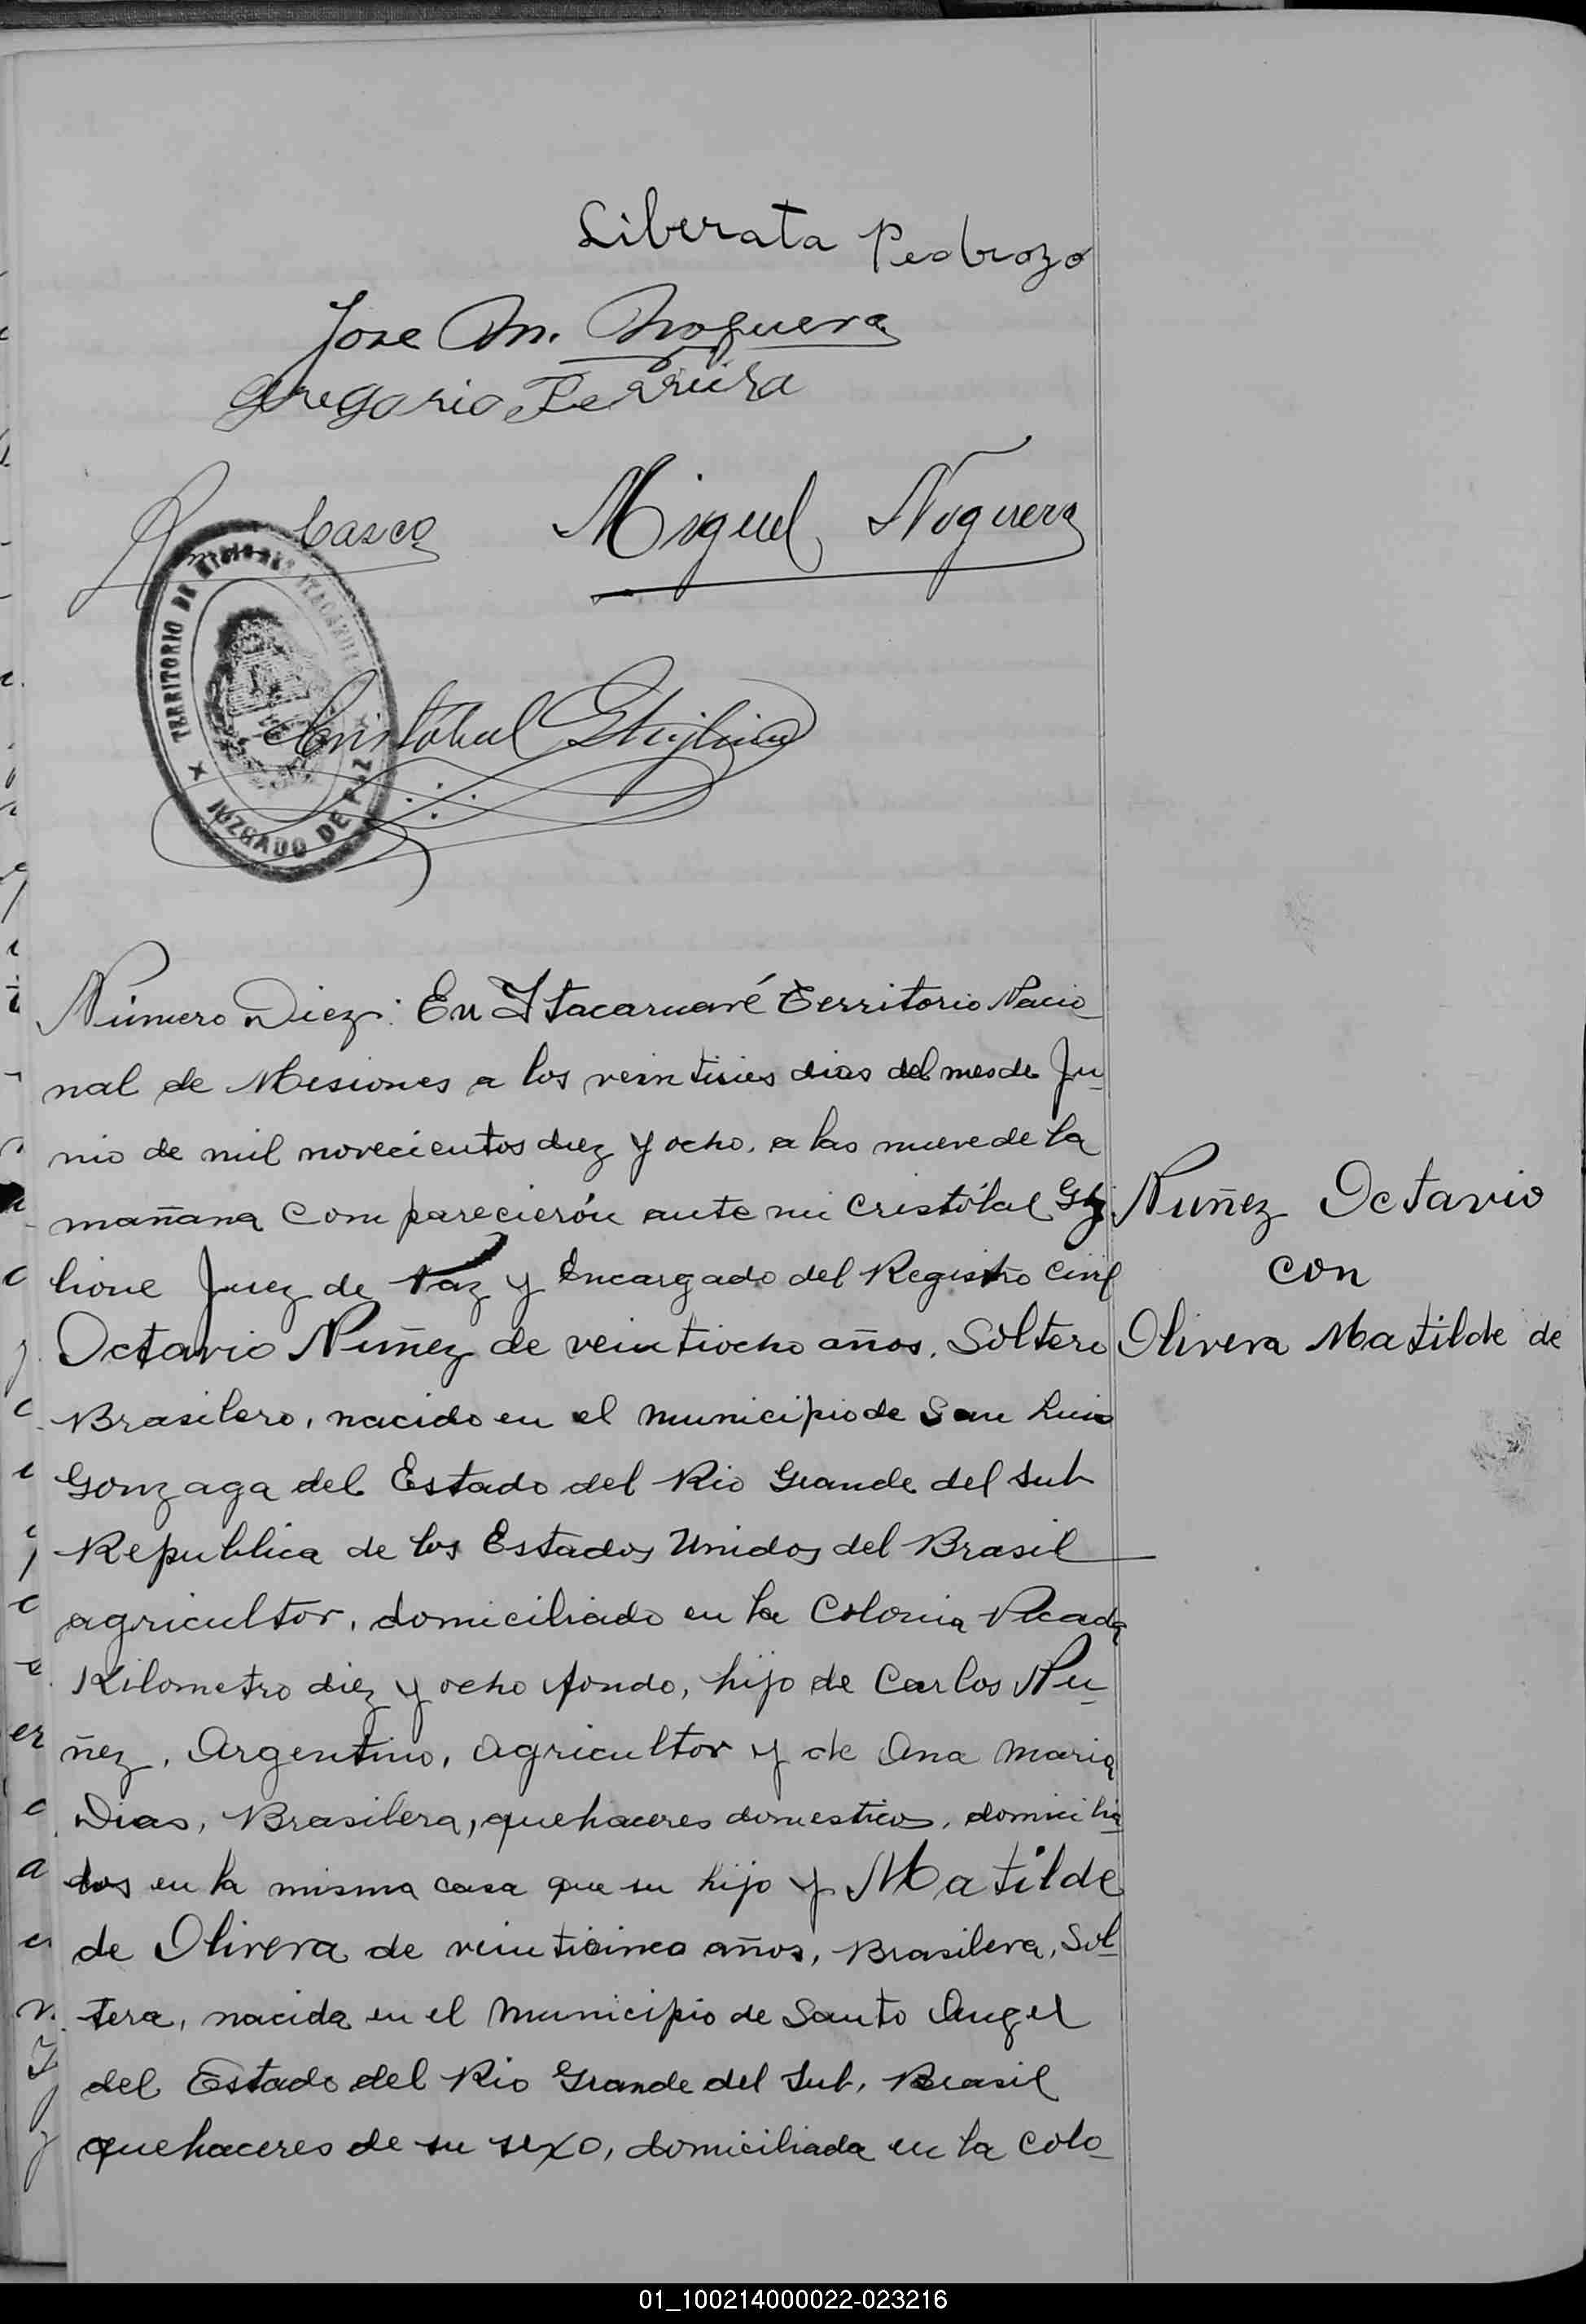 Liberata Pedrozo
Jose M. Noguera
Gregorio Ferreira
Casco
Miguel Noguera
TERRITORIO DE MISIONES ITACARUARE
JUZGADO DE PAZ
Cristóbal Ghiglione
Número Diez: En Itacaruaré Territorio Nacio
nal de Misiones a los veintiseis dias del mes de Ju-
nio de mil novecientos diez y ocho, a las nueve de la
mañana comparecierón ante mi Cristóbal Ghi
lione Juez de Paz y Encargado del Registro Civil
Octavio Nuñez de veintiocho años, Soltero
Brasilero, nacido en el municipio de San Luis
Gonzaga del Estado del Rio Grande del Sub
Republica de los Estados Unidos del Brasil
agricultor, domiciliado en la Colonia Picada
Kilometro diez y ocho fondo, hijo de Carlos Nu-
ñez, Argentino, agricultor y de Ana Maria
Dias, Brasilera, quehaceres domesticos, domicilia
dos en la misma casa que su hijo y Matilde
de Olivera de veinticinco años, Brasilera, Sol-
tera, nacida en el Municipio de Santo Angel
del Estado del Rio Grande del Sub, Brasil
quehaceres de su sexo, domiciliada en la Colo-
Nuñez Octavio
con
Olivera Matilde de
01_100214000022-023216